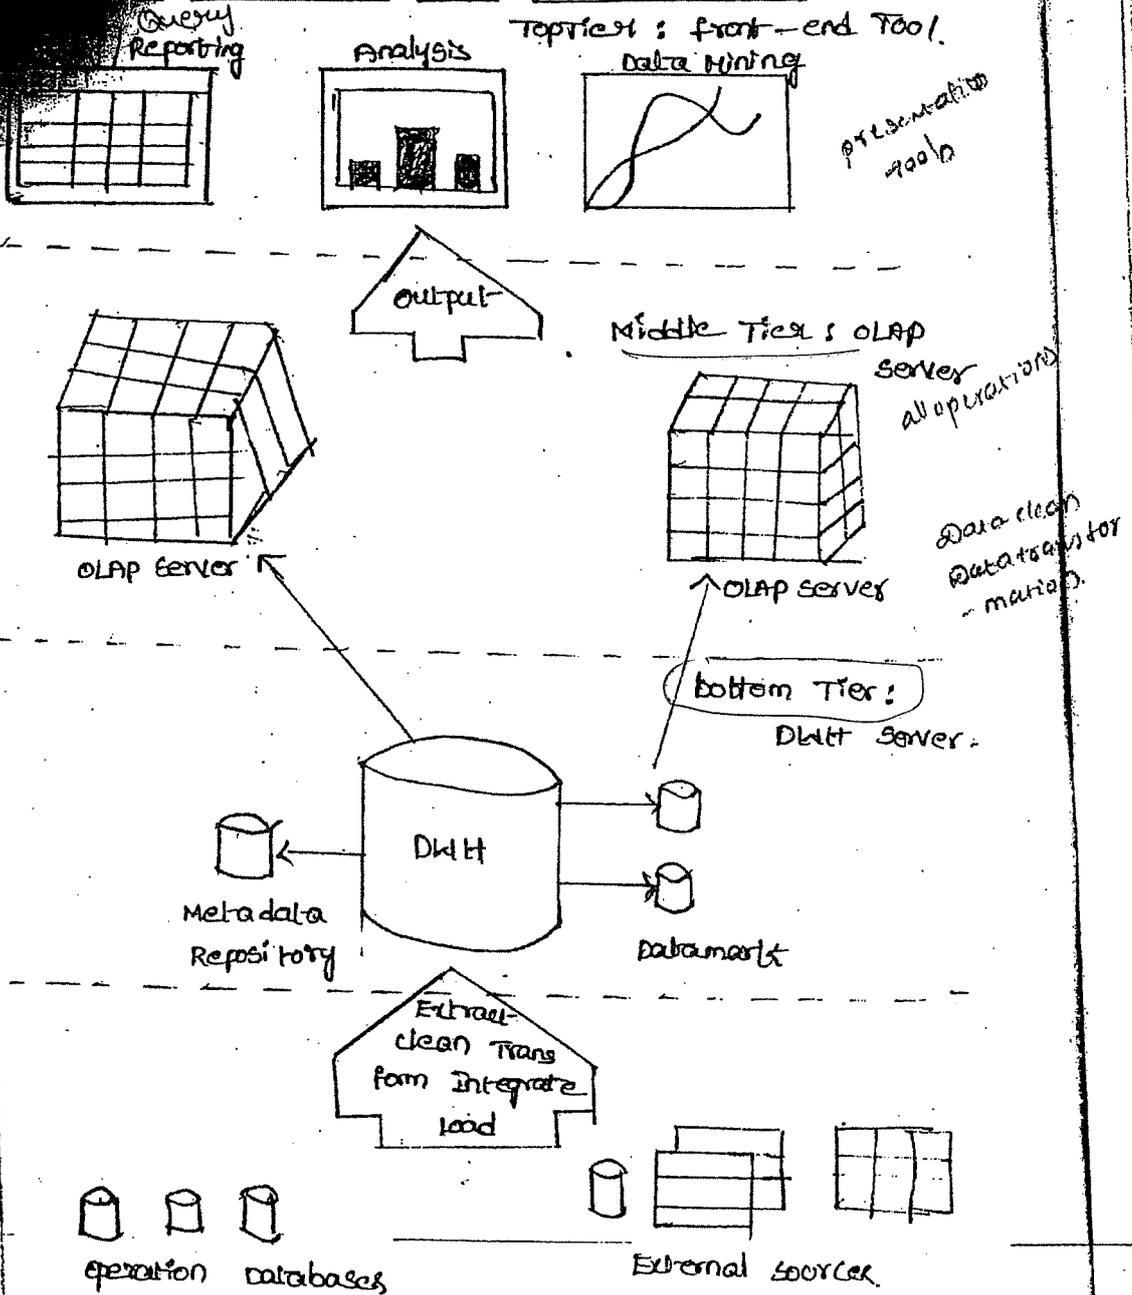 Query
Reporting
Analysis
TopTier : front-end Tool.
Data Mining
presentation
tools
Output
Middle Tier : OLAP
Server
all operations
OLAP Server
OLAP Server
Data clean
Data transfor
- mation.
bottom Tier :
DWH Server.
DWH
Metadata
Repository
Datamarts
Extract
clean Trans
form Integrate
Load
operation Databases
External sources.